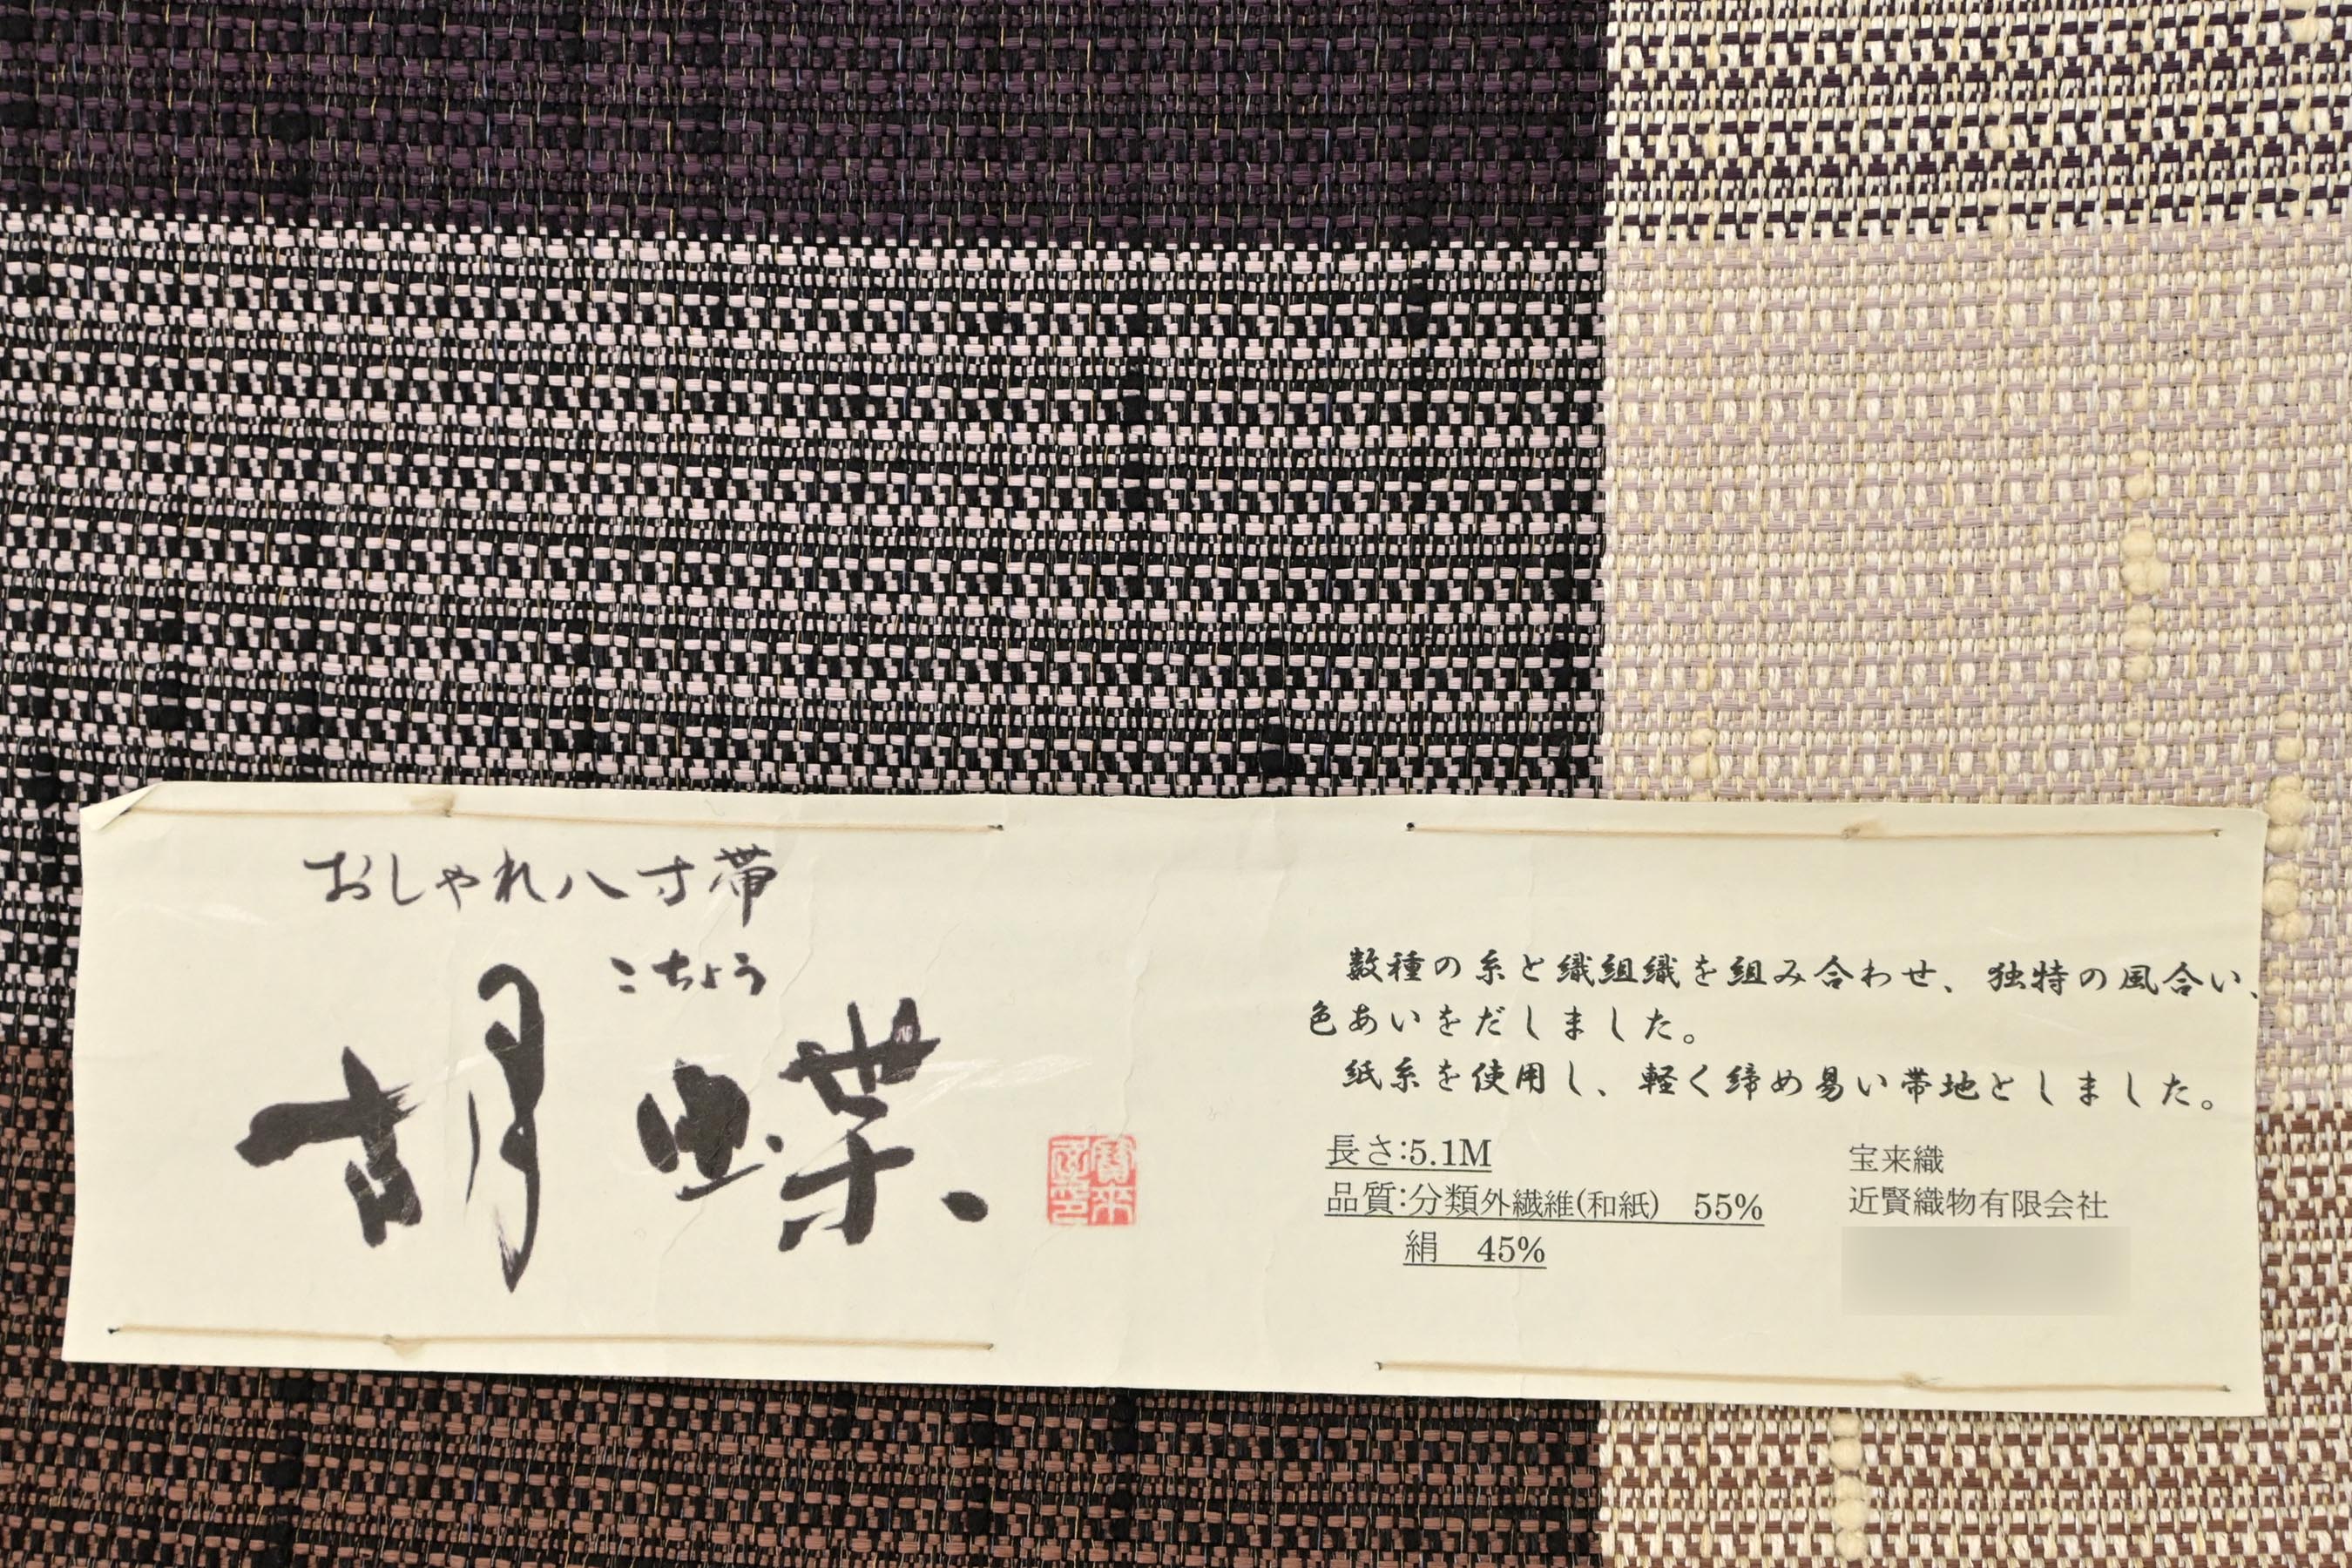 おしゃれ八寸帯
こちょう
胡蝶
数種の糸と織組織を組み合わせ、独特の風合い、
色あいをだしました。
紙糸を使用し、軽く締め易い帯地としました。
長さ:5.1M
品質:分類外繊維(和紙) 55%
絹 45%
宝来織
近賢織物有限会社